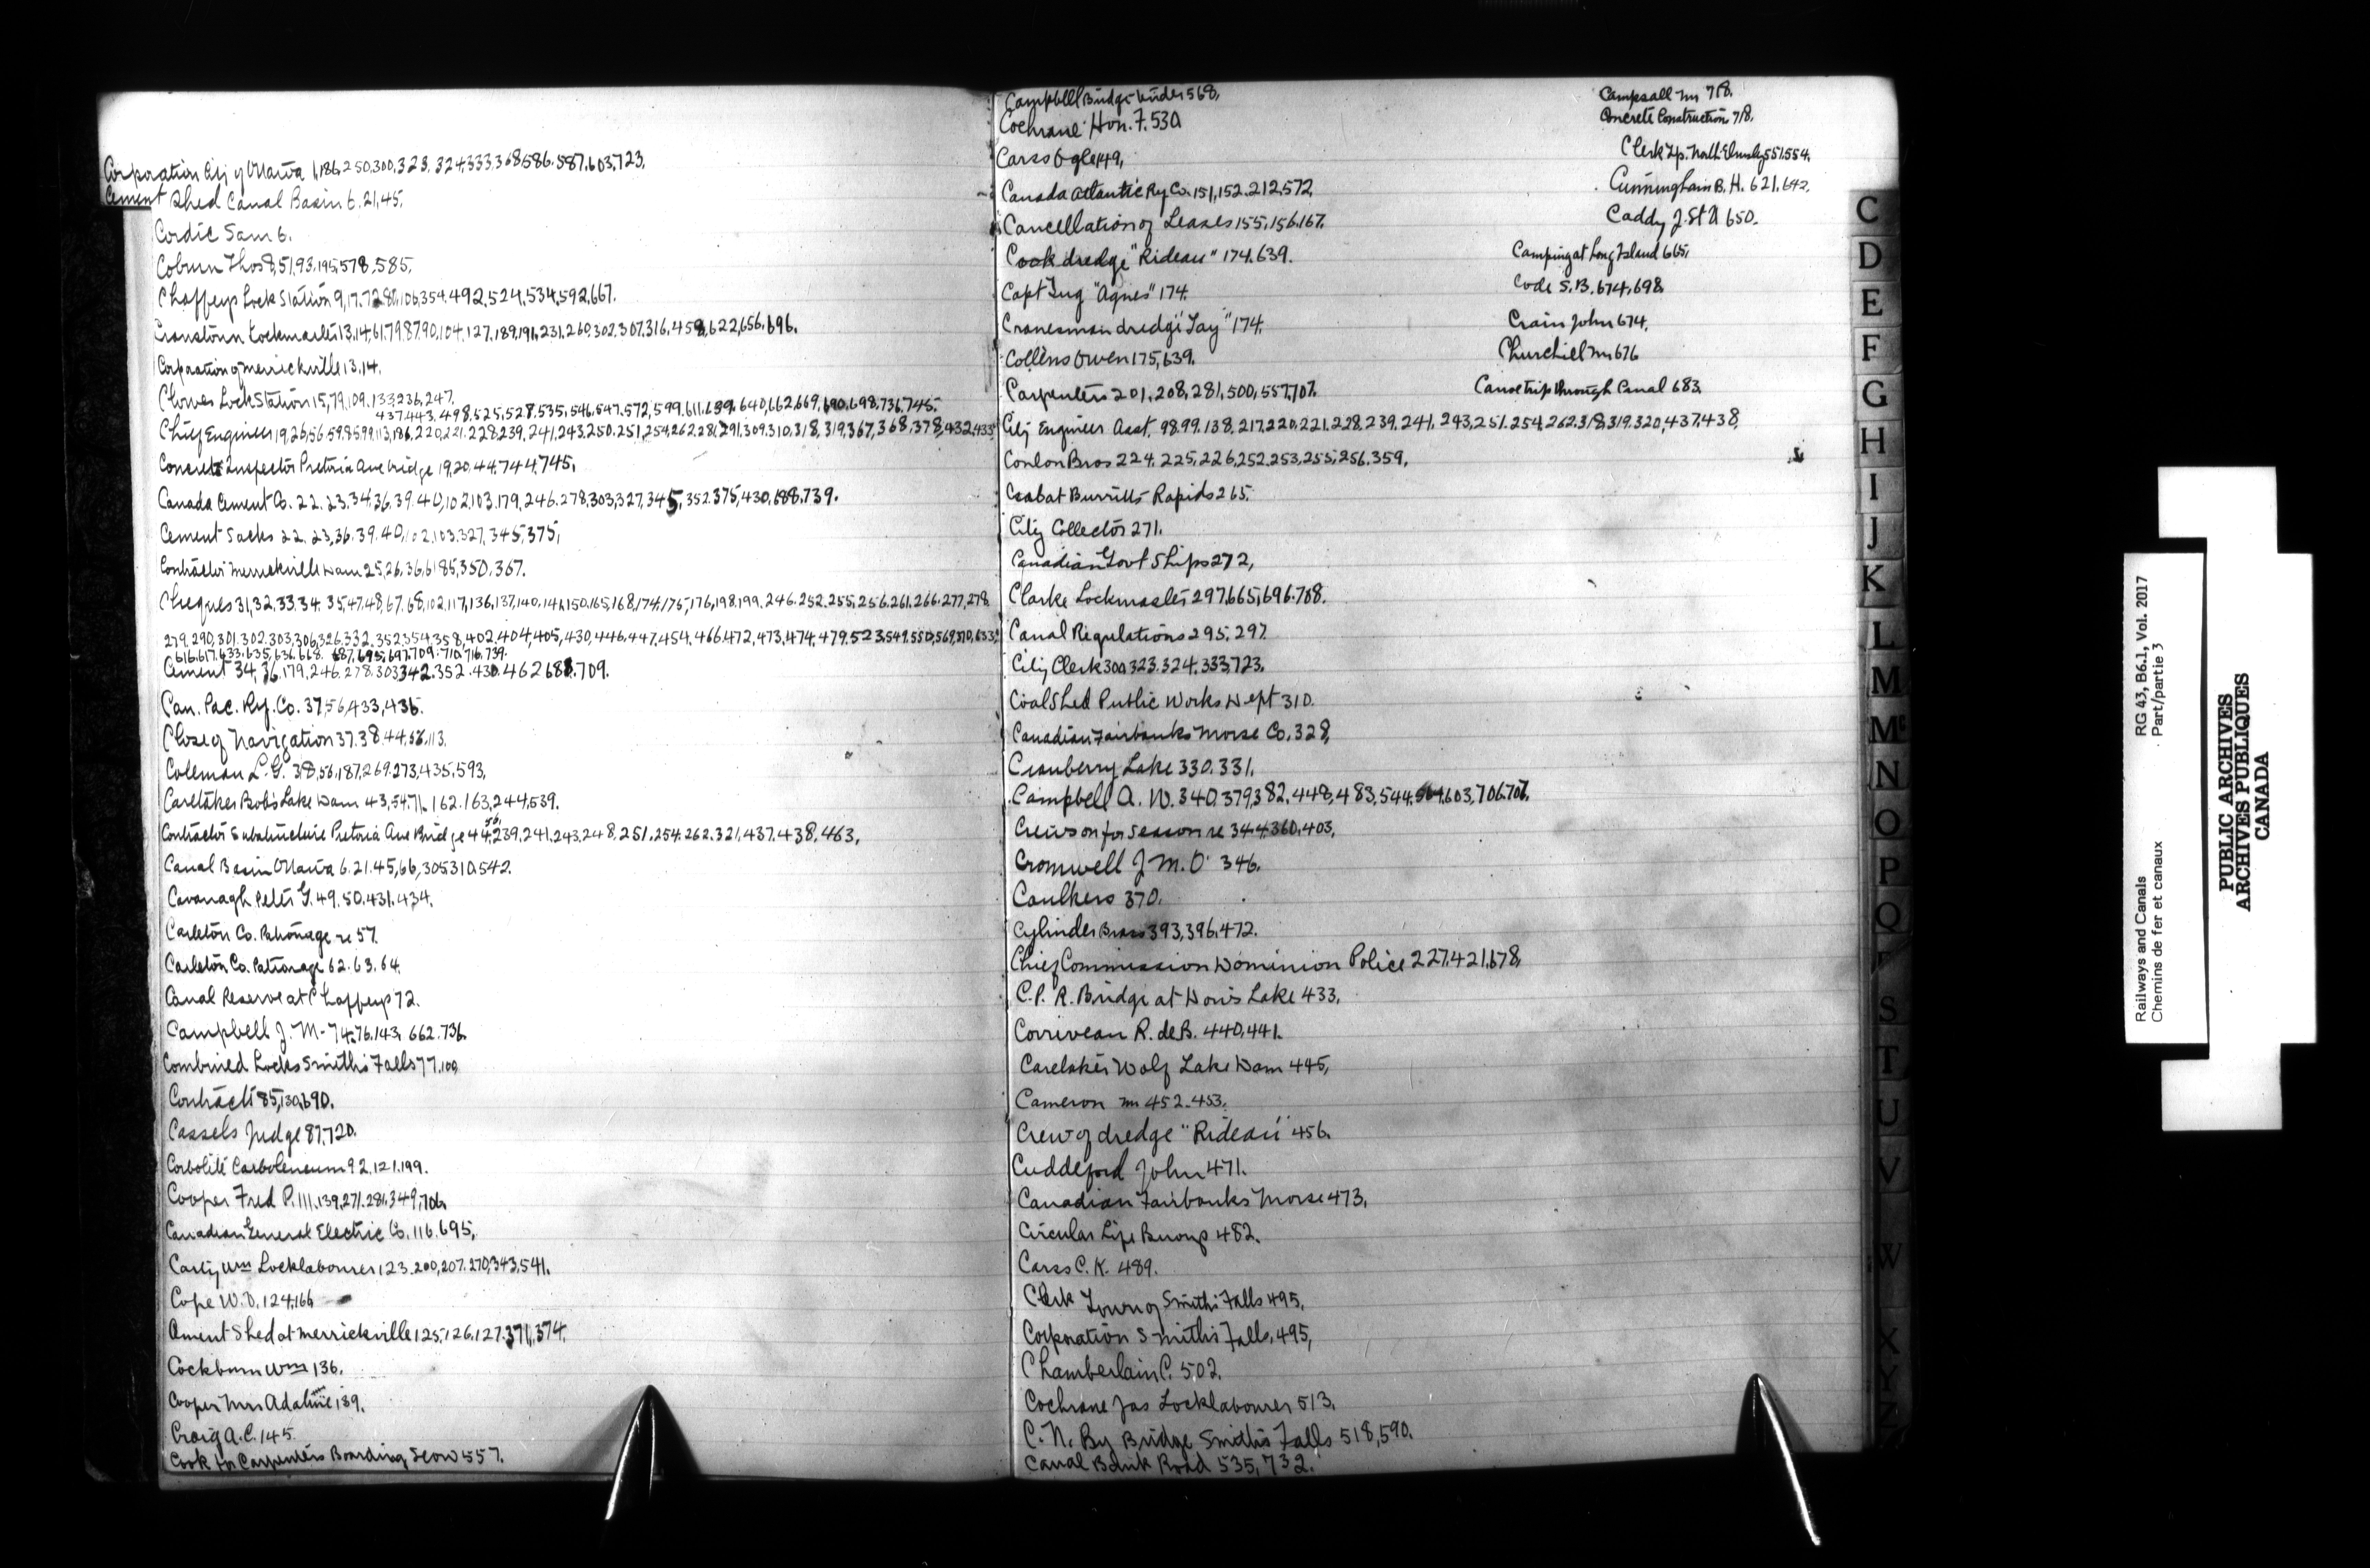 Corporation City of Ottawa 1,186,250,300,323,324,333,368,586,587,603,723,
Cement Shed Canal Basin 6.21,45,
Cordic Sam 6.
Coburn Thos 8,51,93,195,578,585,
Chaffeys Lock Station 9,17,72,86,106,354.492,524,534,592,667.
Cranston Lockmaster 13,14,61,79,87,90,104,127,189,191,231,260,302,307,316,458,622,656,696.
Corporation of Merrickville 13,14.
Clowes Lock Station 15,79,109,133,236,247.
437,443,498,525,528,535,546,547,572,599,611,639,640,662,669,690,698,736,745.
Chief Engineer 19,26,56,59,85,99,113,186,220,221,228,239,241,243,250,251,254,262,281,291,309,310,318,319,367,368,378,432,433
Concrete Inspector Pretoria Ave bridge 19,20,44,744,745,
Canada Cement Co. 22.23,34,36,39.40,102,103,179,246.278,303,327,345,352,375,430,688,739.
Cement Sacks 22.23,36.39.40,102,103,327,345,375,
Contractor Merrickville Dam 25,26,36,61,85,350,367.
Cheques 31,32,33,34.35,47,48,67,68,102,117,136,137,140,141,150,165,168,174,175,176,198,199,246,252,255,256,261,266,277,278
279,290,301,302,303,306,326,332,352,354,358,402,404,405,430,446,447,454,466,472,473,474,479,523,549,550,569,570,633,
616,617,633,635,636,668,687,695,697,709,710,716,739.
Cement 34,36,179,246,278,303,342,352,430,462,688,709.
Can. Pac. Ry. Co. 37,56,433,435.
Close of Navigation 37,38,44,56,113.
Coleman L.G. 38,56,187,269,273,435,593,
Caretaker Bobs Lake Dam 43,54,71,162,163,244,539.
56,
Contractor Substructure Pretoria Ave Bridge 44,239,241,243,248,251,254,262,321,437,438,463,
Canal Basin Ottawa 6.21.45,66,305,310,542.
Cavanagh Peter G. 49.50,431,434.
Carleton Co. Patronage re 57.
Carleton Co. Patronage 62.63.64.
Canal Reserve at Chaffeys 72.
Campbell J. M. 74,76,143,662.736.
Combined Locks Smiths Falls 77,100
Contracts 85,130,690.
Cassels Judge 87,720.
Carbolite Carboleneum 92.121.199.
Cooper Fred P. 111,139,271,281,349,706.
Canadian General Electric Co. 116.695,
Carty Wm Locklabourer 123.200,207.270,343,541.
Cope W.D. 124,166
Cement Shed at Merrickville 125,126,127,371,374.
Cockburn Wm 136.
Cooper Mrs Adaline 139.
Craig A.C. 145.
Cook for Carpenters Boarding Scow 557.
Campbell Bridge Tender 568.
Cochrane Hon. F. 530
Carss Ogle 149,
Canada Atlantic Ry Co. 151,152.212,572,
Cancellation of Leases 155,156,167.
Cook dredge "Rideau" 174.639.
Capt Tug "Agnes" 174.
Cranesman dredge "Tay" 174.
Collins Owen 175,639.
Carpenters 201,208,281,500,557,707.
City Engineer Asst. 98.99.138.217,220,221,228,239,241,243,251,254,262,318,319,320,437,438.
Conlon Bros 224.225,226,252,253,255,256.359.
Cabat Burritts Rapids 265.
City Collector 271.
Canadian Govt Ships 272,
Clarke Lockmaster 297,665,696.708.
Canal Regulations 295.297.
City Clerk 300,323,324,333,723.
Coal Shed Public Works Dept 310.
Canadian Fairbanks Morse Co. 328,
Cranberry Lake 330.331.
Campbell A. W. 340,379,382,448,483,544,564,603,706,707.
Crews on for season re 344,360,403,
Cromwell J M. O. 346.
Caulkers 370.
Cylinder Brass 393,396,472.
Chief Commission Dominion Police 227,421,678,
C.P. R. Bridge at Dows Lake 433.
Corriveau R. de B. 440,441.
Caretaker Wolf Lake Dam 445,
Cameron Mr 452-453.
Crew of dredge "Rideau" 456.
Cuddeford John 471.
Canadian Fairbanks Morse 473,
Circular Life Buoys 482.
Carss C. K. 489.
Clerk Town of Smiths Falls 495,
Corporation Smiths Falls, 495,
Chamberlain C. 502.
Cochrane Jas Locklabourer 513.
C. N. Ry Bridge Smiths Falls 518,590.
Canal Bank Road 535,732.
Campsall Mr 718.
Concrete Construction 718.
Clerk Tp. North Elmsley 551,554.
Cunningham B. H. 621,642.
Caddy J. St A 650.
Camping at Long Island 665,
Code S.B. 674,698
Crain John 674.
Churchill Mr 676
Canoe trip through Canal 683.
C
D
E
F
G
H
I
J
K
L
M
Mc
N
O
P
Q
S
T
U
V
W
X
Y
Z
Railways and Canals
Chemins de fer et canaux
RG 43, B6.1, Vol. 2017
Part/partie 3
PUBLIC ARCHIVES
ARCHIVES PUBLIQUES
CANADA